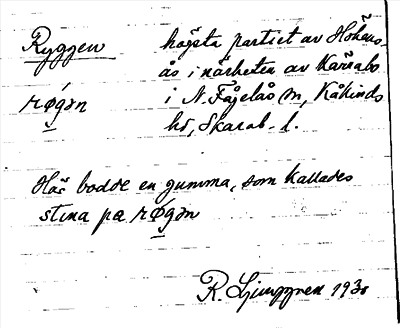 Ryggen högsta partiet av Hökens-
ås i närheten av Kärsabo
røgən i N. Fågelås sn, Kåkinds
hd, Skarab. l.
Här bodde en gumma, som kallades
stina pa røgən
R. Ljunggren 1930